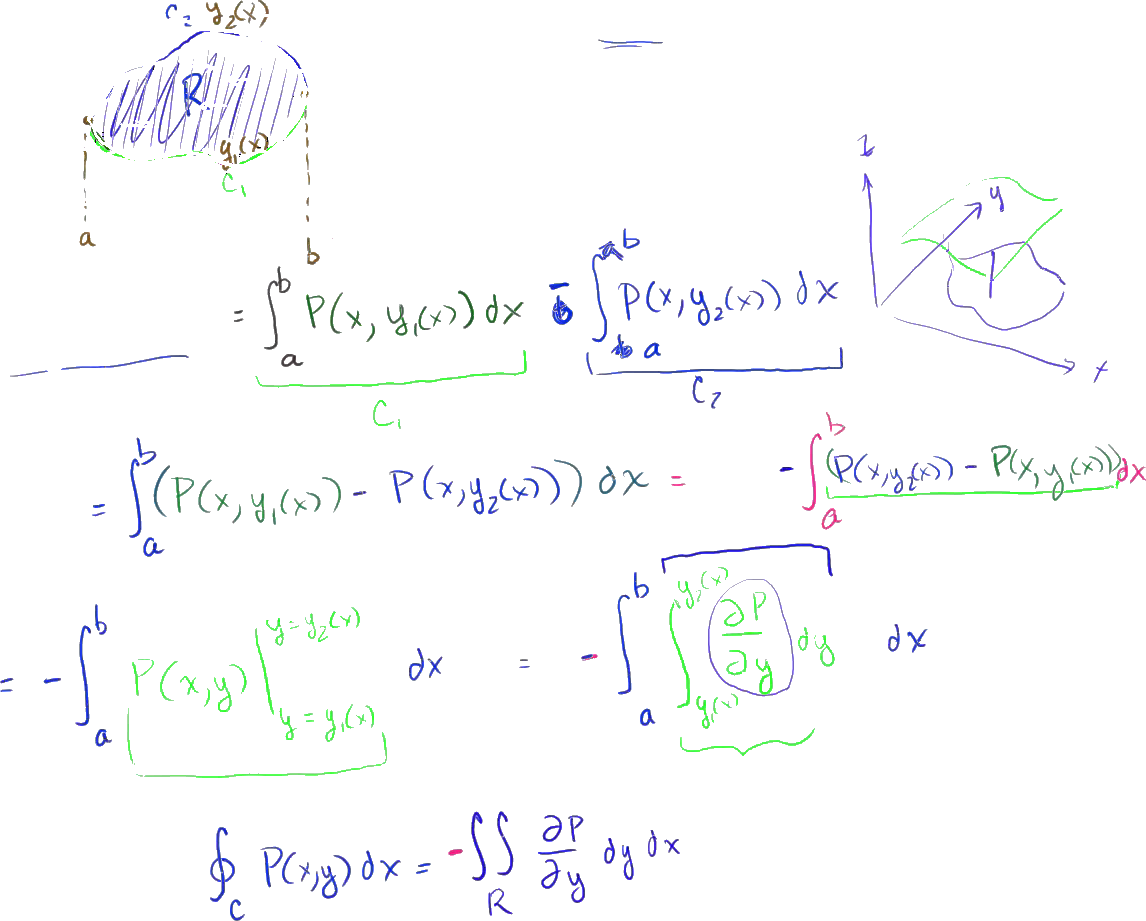 C₂ y₂(x)
R
y₁(x)
C₁
a
b
z
y
x
= ∫ₐᵇ P(x, y₁(x)) dx - ∫ₐᵇ P(x, y₂(x)) dx
C₁ C₂
= ∫ₐᵇ (P(x, y₁(x)) - P(x, y₂(x))) dx = - ∫ₐᵇ (P(x, y₂(x)) - P(x, y₁(x))) dx
= - ∫ₐᵇ P(x,y) |_{y = y₁(x)}^{y = y₂(x)} dx = - ∫ₐᵇ ∫_{y₁(x)}^{y₂(x)} ∂P/∂y dy dx
∮_C P(x,y) dx = - ∬_R ∂P/∂y dy dx